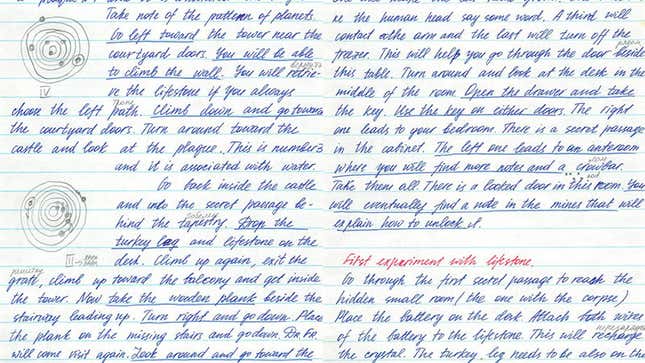 Take note of the pattern of planets.
Go left toward the tower near the
courtyard doors. You will be able
to climb the wall. You will retrie-
ve the lifestone if you always
choose the left path. Climb down and go towards
the courtyard doors. Turn around toward the
castle and look at the plaque. This is number 3
and it is associated with water.
Go back inside the castle
and into the secret passage be-
hind the tapestry. Drop the
turkey leg and lifestone on the
desk. Climb up again, exit the
grate, climb up toward the balcony and get inside
the tower. Now take the wooden plank beside the
stairway leading up. Turn right and go down. Place
the plank on the missing stairs and go down. Dr. Fr.
will come visit again. Look around and go toward the
IV
III
re the human head say some word. A third will
contact othe arm and the last will turn off the
freezer. This will help you go through the door beside
this table. Turn around and look at the desk in the
middle of the room. Open the drawer and take
the key. Use the key on either doors. The right
one leads to your bedroom. There is a secret passage
in the cabinet. The left one leads to an anteroom
where you will find more notes and a crowbar.
Take them all. There is a locked door in this room. You
will eventually find a note in the mines that will
explain how to unlock it.
First experiment with lifestone.
Go through the first secret passage to reach the
hidden small room (the one with the corpse)
Place the battery on the desk. Attach both wires
of the battery to the lifestone. This will recharge
the crystal. The turkey leg needs to be also on the